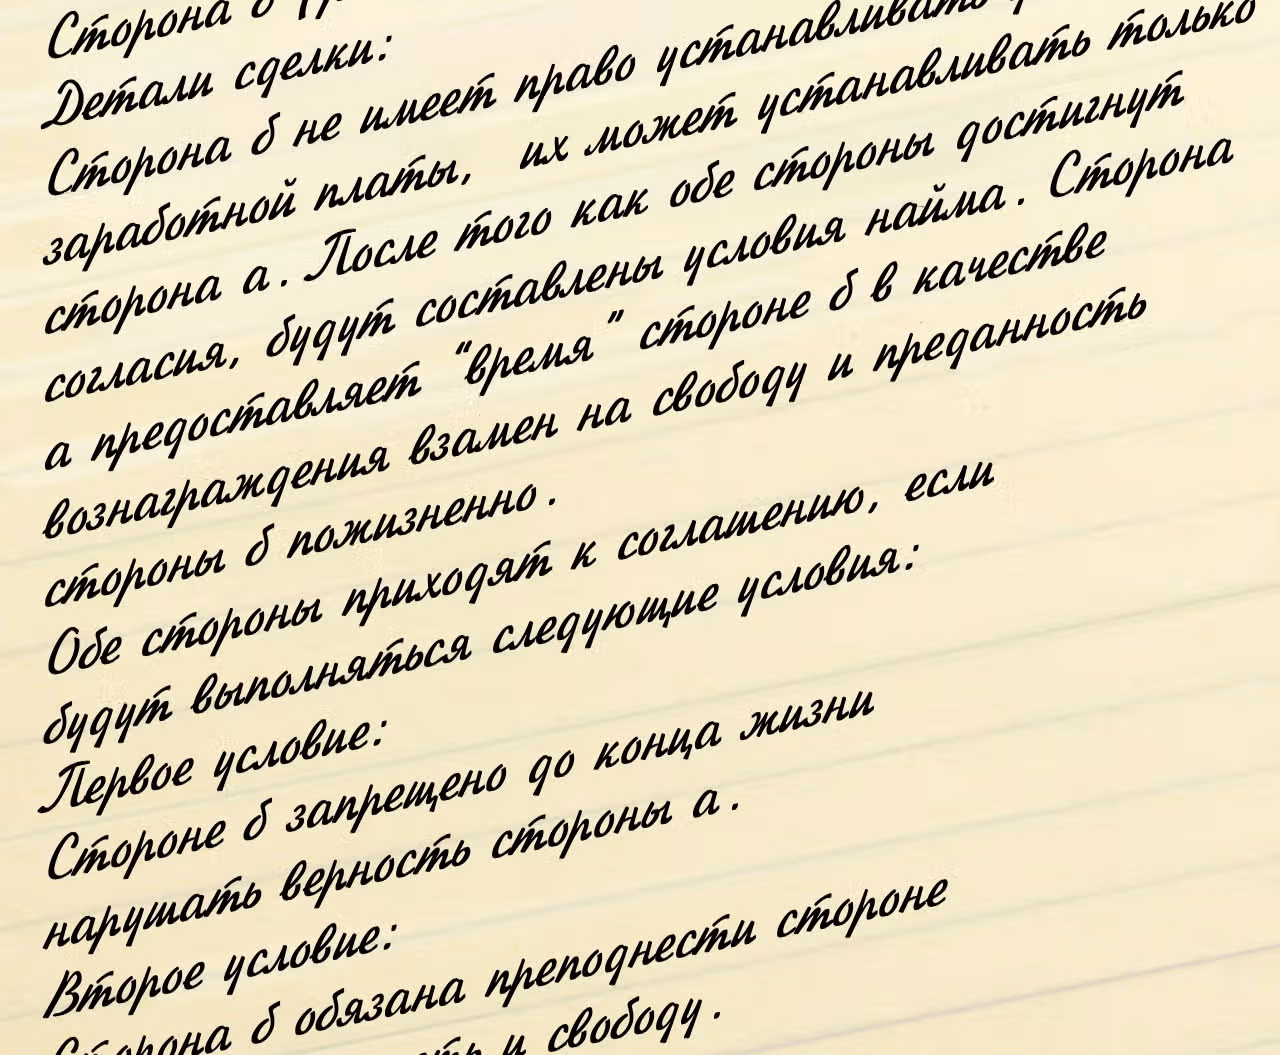 Сторона б
Детали сделки:
Сторона б не имеет право устанавливать
заработной платы, их может устанавливать только
сторона а. После того как обе стороны достигнут
согласия, будут составлены условия найма. Сторона
а предоставляет "время" стороне б в качестве
вознаграждения взамен на свободу и преданность
стороны б пожизненно.
Обе стороны приходят к соглашению, если
будут выполняться следующие условия:
Первое условие:
Стороне б запрещено до конца жизни
нарушать верность стороны а.
Второе условие:
Сторона б обязана преподнести стороне
и свободу.